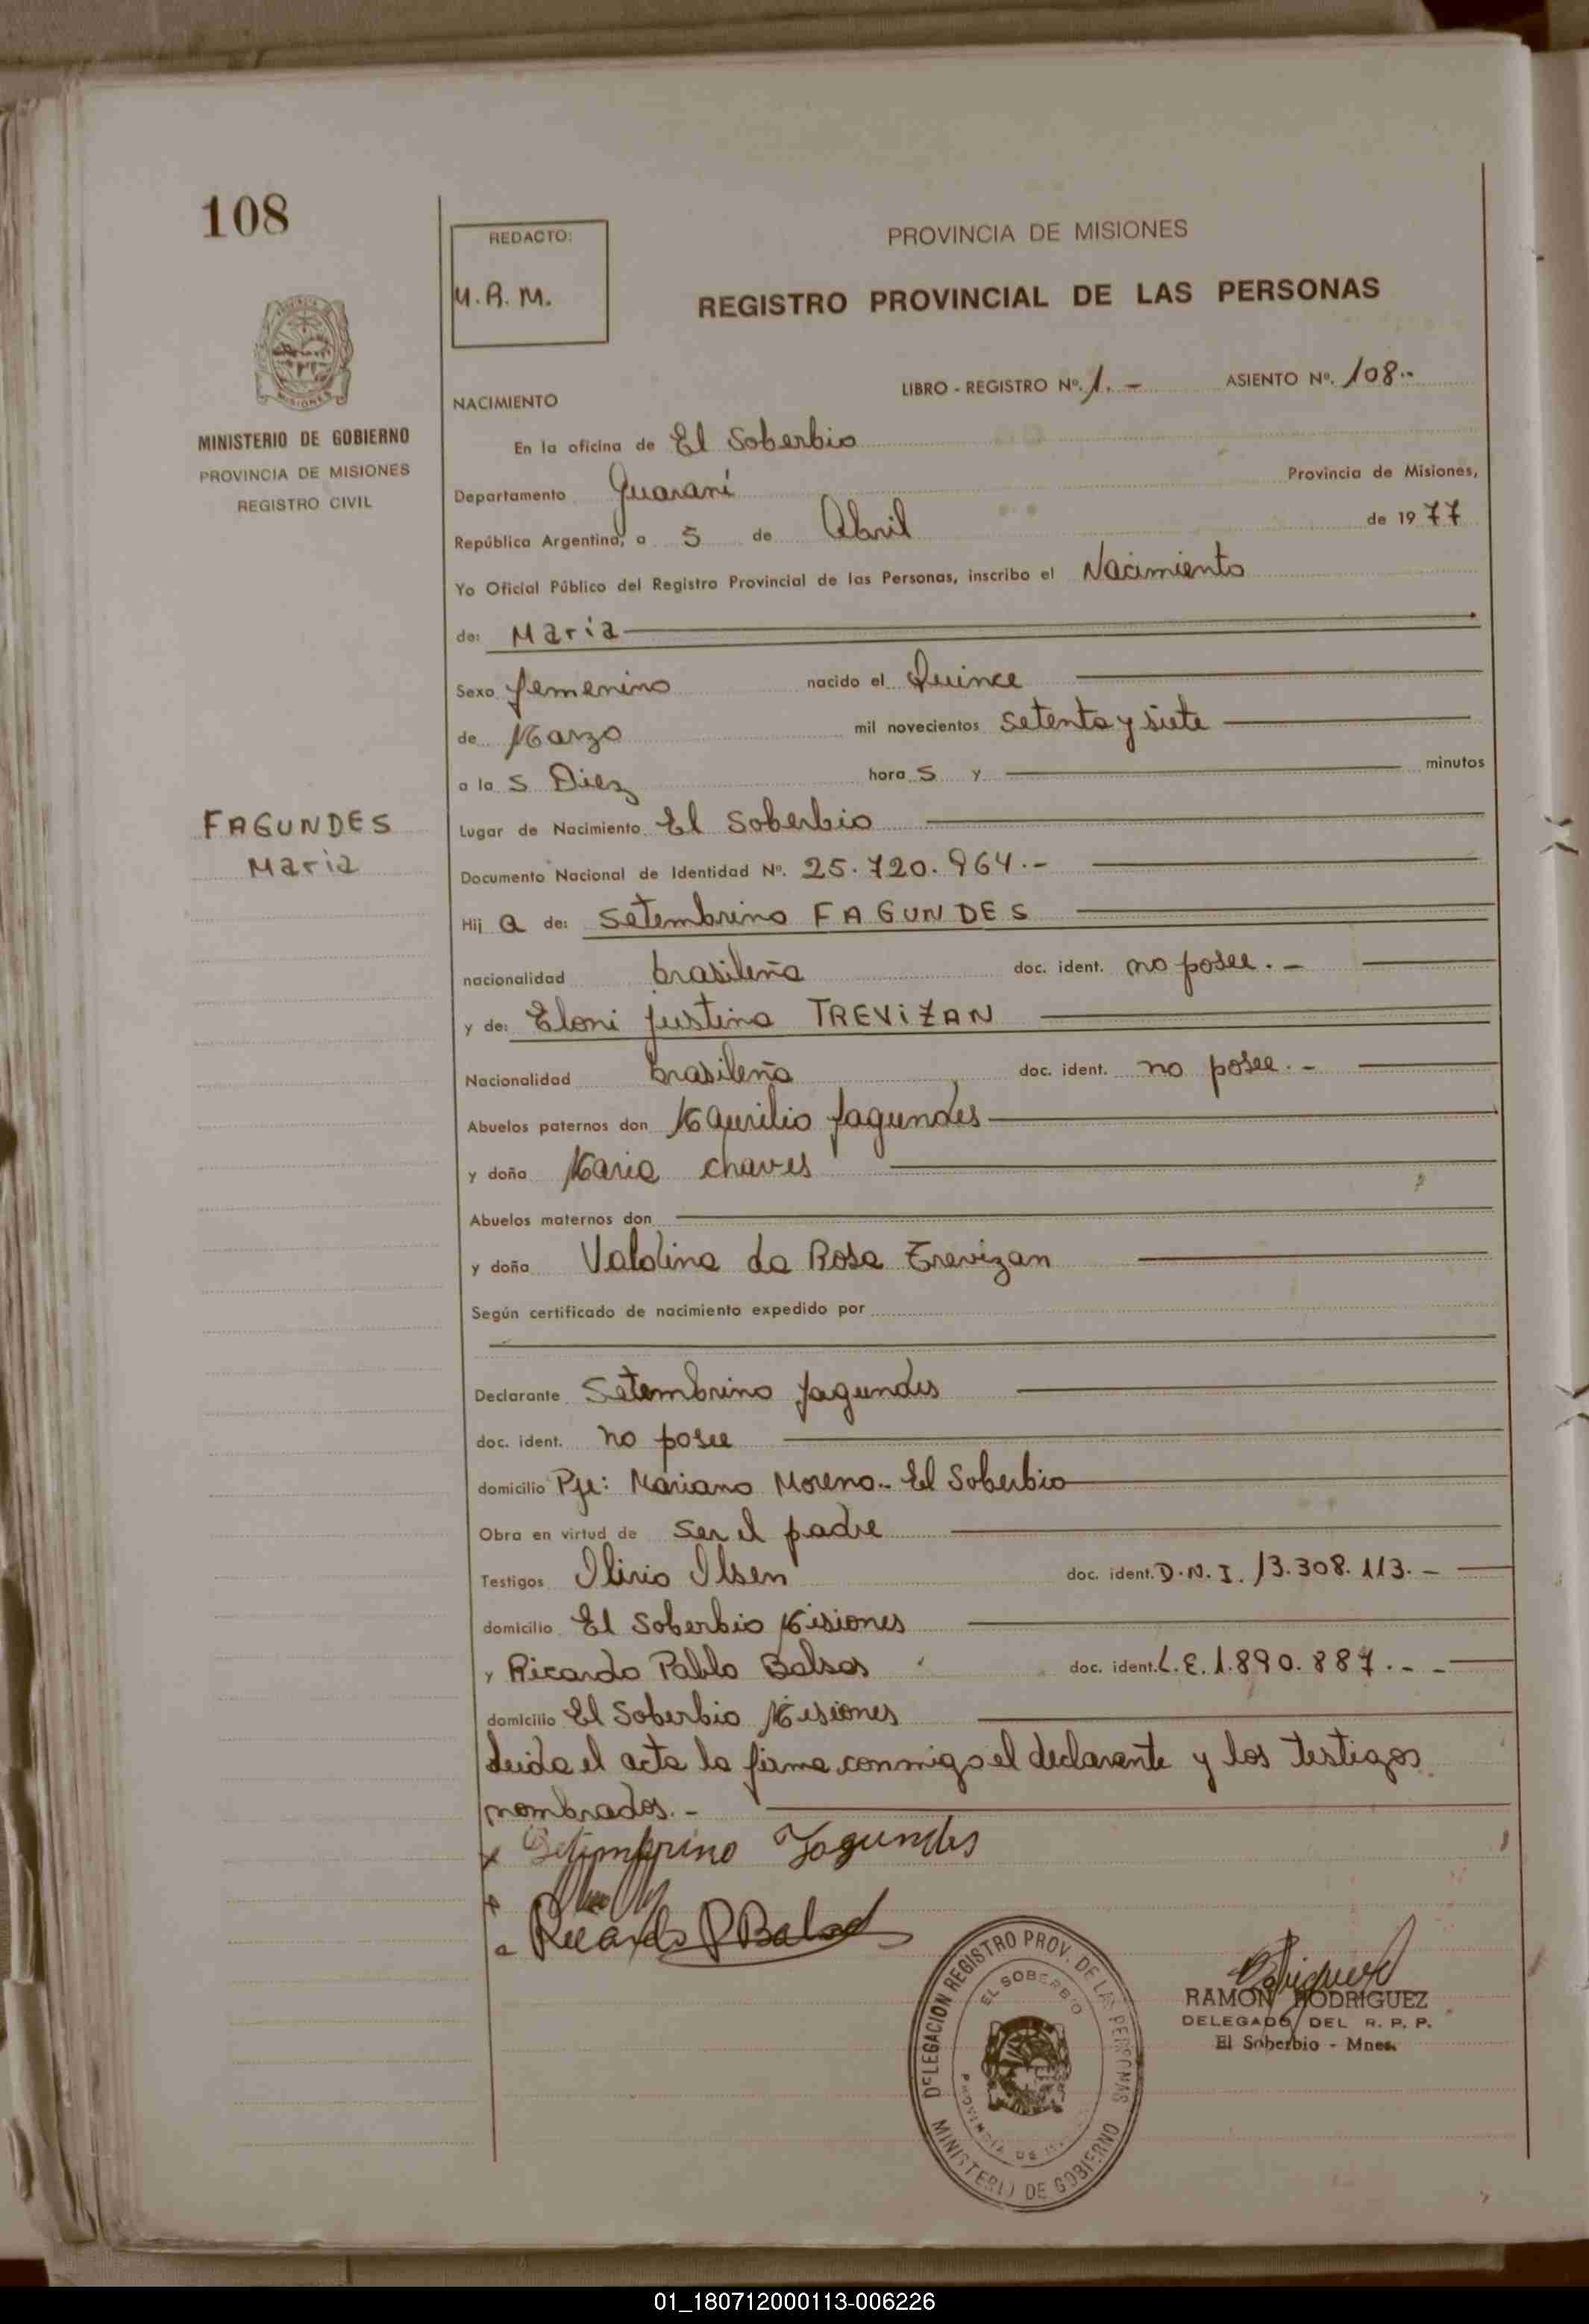 108
REDACTO:
M.A.M.
PROVINCIA DE MISIONES
REGISTRO PROVINCIAL DE LAS PERSONAS
MINISTERIO DE GOBIERNO
PROVINCIA DE MISIONES
REGISTRO CIVIL
MISIONES
LIBRO - REGISTRO Nº. 1. - ASIENTO Nº. 108.-
NACIMIENTO
En la oficina de El Soberbio
Departamento Guaraní Provincia de Misiones,
República Argentina, a 5 de Abril de 1977
Yo Oficial Público del Registro Provincial de las Personas, inscribo el Nacimiento
de: Maria
Sexo femenino nacido el Quince
de Marzo mil novecientos setenta y siete
a la s Diez hora s y minutos
FAGUNDES
Maria
Lugar de Nacimiento El Soberbio
Documento Nacional de Identidad Nº. 25.720.964.-
Hij a de: Setembrino FAGUNDES
nacionalidad brasileña doc. ident. no posee.-
y de: Eloni Justina TREVIZAN
Nacionalidad brasileña doc. ident. no posee.-
Abuelos paternos don Maurilio Fagundes
y doña Maria chaves
Abuelos maternos don
y doña Valdina da Rosa Trevizan
Según certificado de nacimiento expedido por
Declarante Setembrino Fagundes
doc. ident. no posee
domicilio Pje: Mariano Moreno.- El Soberbio
Obra en virtud de ser el padre
Testigos Olirio Olsen doc. ident. D.N.I. 13.308.113.-
domicilio El Soberbio Misiones
y Ricardo Pablo Balsas doc. ident. L.E. 1.890.887.-
domicilio El Soberbio Misiones
Leida el acta la firma conmigo el declarante y los testigos
nombrados.-
x Setembrino Fagundes
Ricardo P Balsas
DELEGACION REGISTRO PROV. DE LAS PERSONAS
EL SOBERBIO
PROVINCIA DE
MINISTERIO DE GOBIERNO
RAMON RODRIGUEZ
DELEGADO DEL R. P. P.
El Soberbio - Mnes.
01_180712000113-006226